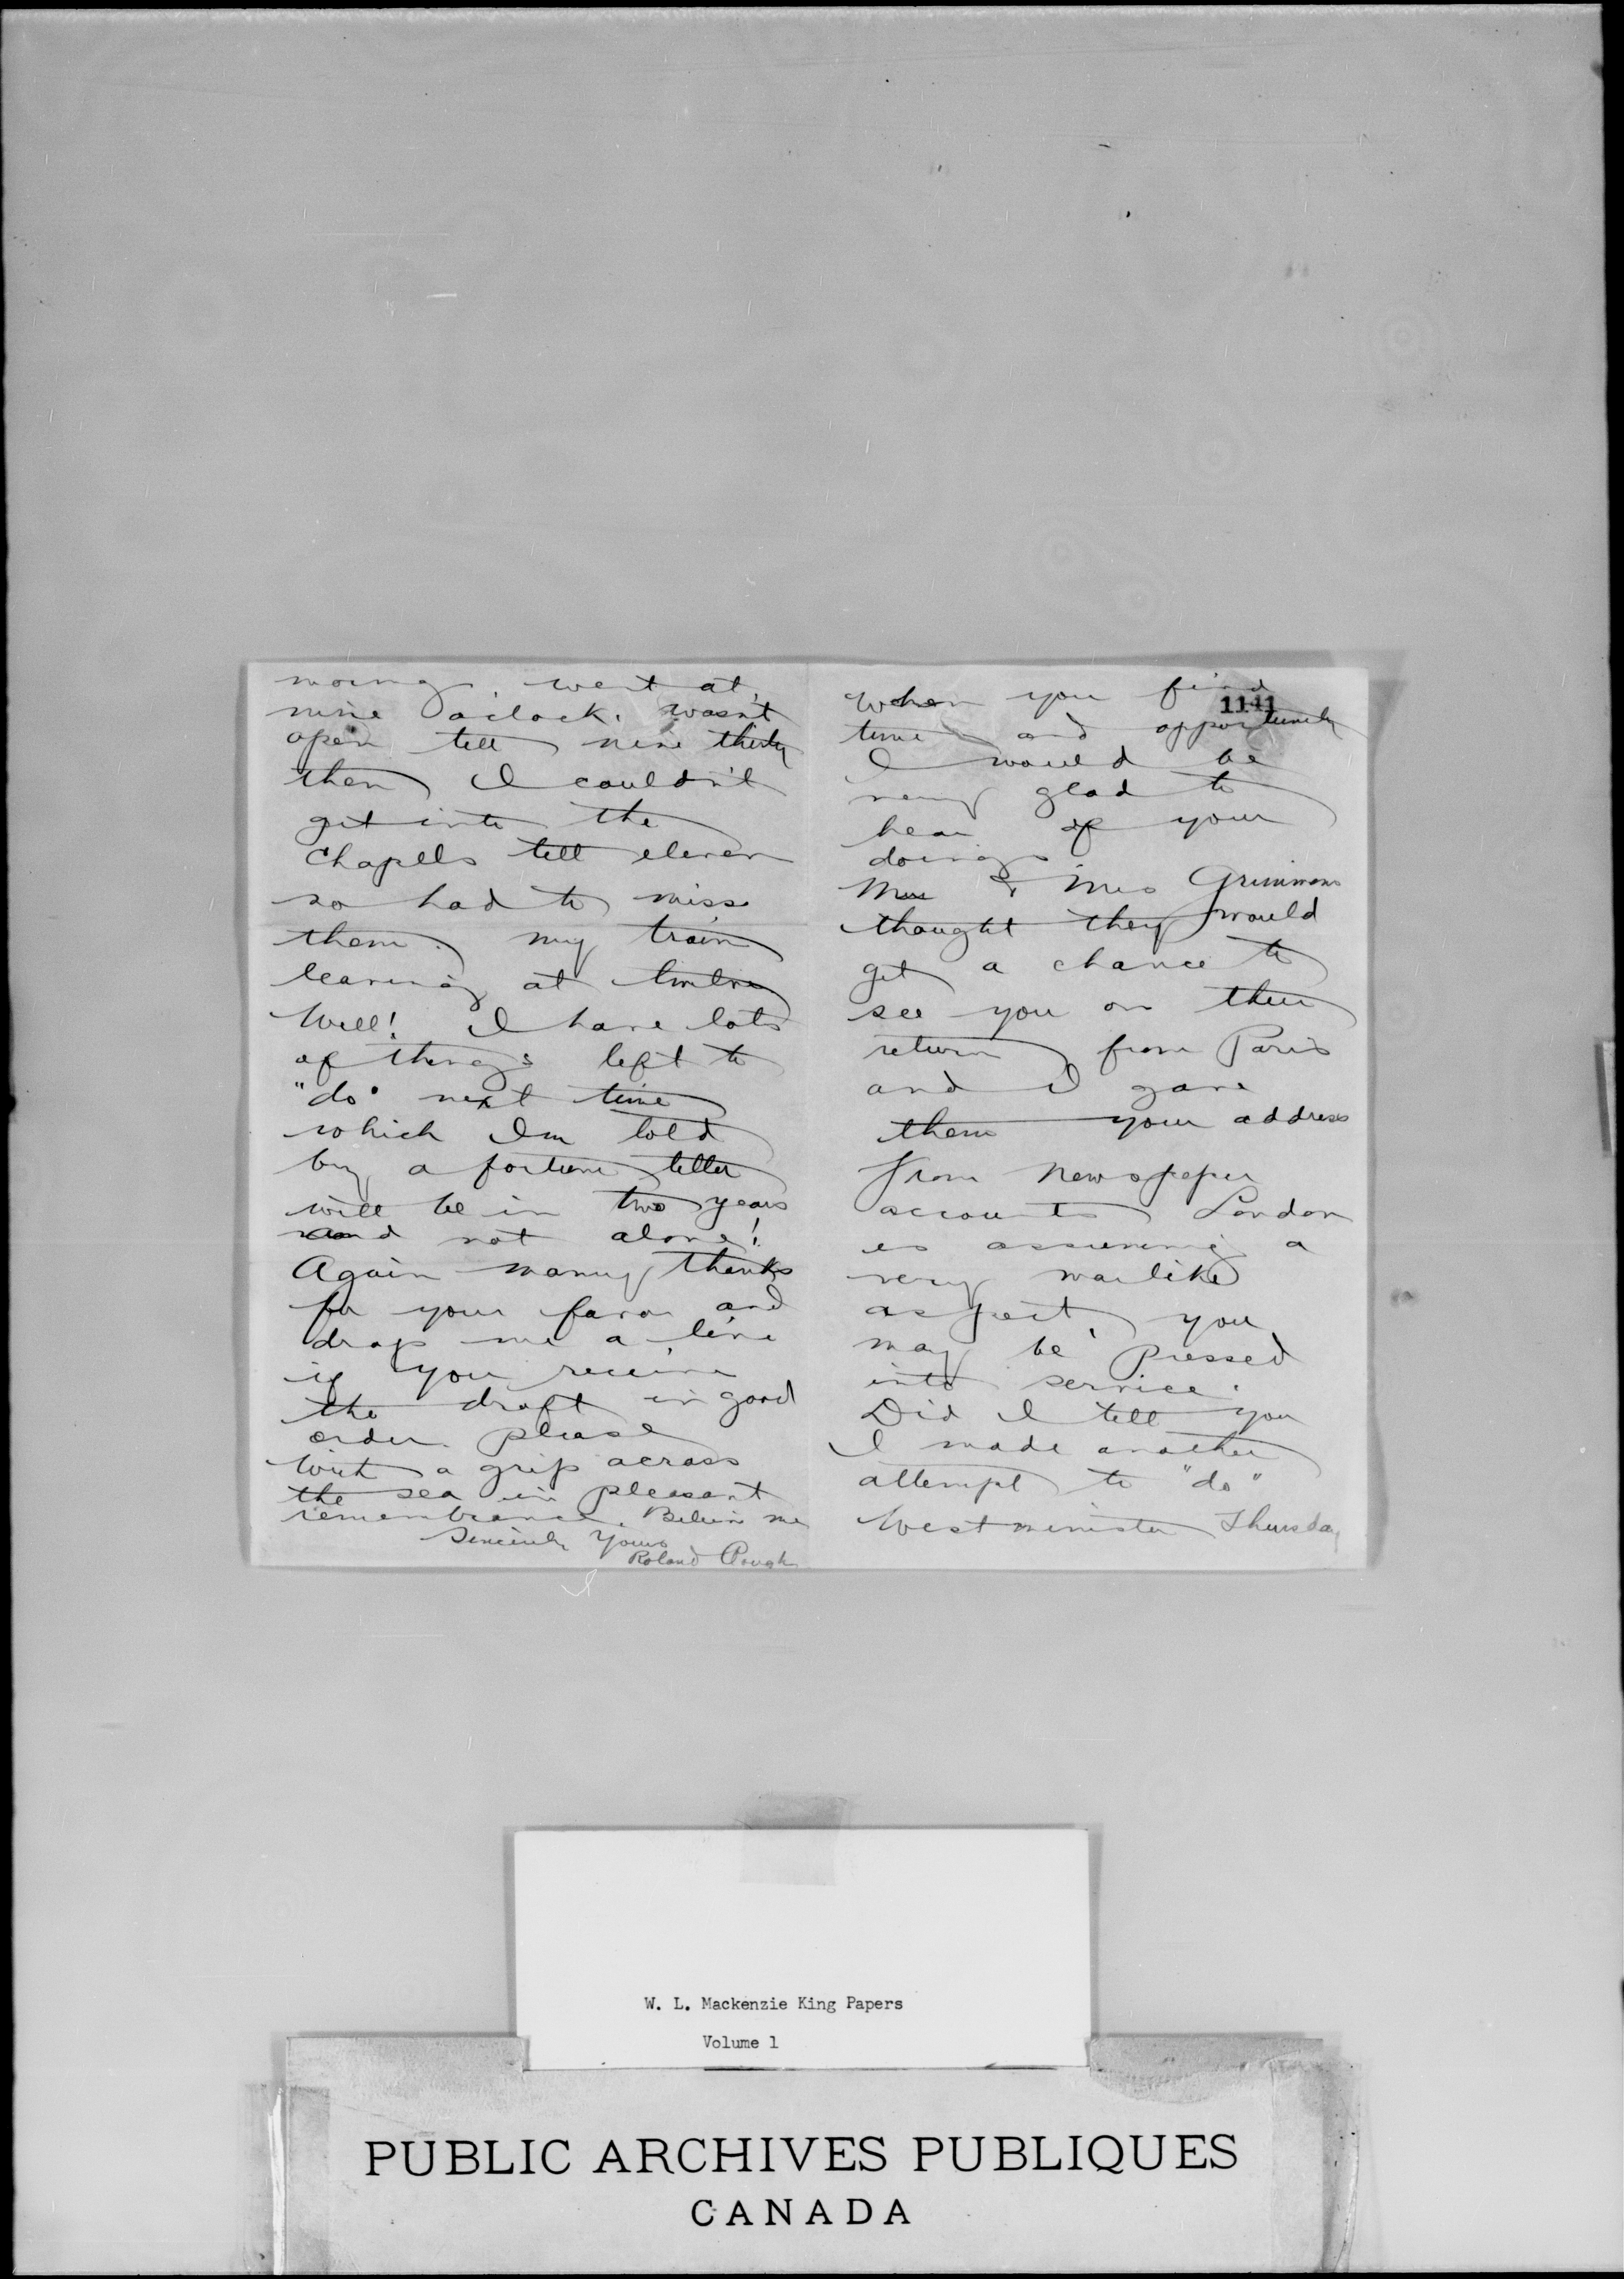 1141
When you find
time and opportunity
I would be
very glad to
hear of your
doings
Mr & Mrs Grimmons
thought they would
get a chance to
see you on their
return from Paris
and I gave
them your address
From Newspaper
accounts London
is assuming a
very warlike
aspect, you
may be pressed
into service.
Did I tell you
I made another
attempt to "do"
Westminister Thursday
morning, went at
nine oclock. wasn't
open till nine thirty
then I couldn't
get into the
Chapells till eleven
so had to miss
them. my train
leaving at twelve
Well! I have lots
of things left to
"do" next time
which Im told
by a fortune teller
will be in two years
and not alone!
Again many thanks
for your favor and
drop me a line
if you receive
the draft in good
order please
With a grip across
the sea in pleasant
remembrance. Believe me
Sincerely Yours
Roland
W. L. Mackenzie King Papers
Volume 1
PUBLIC ARCHIVES PUBLIQUES
CANADA